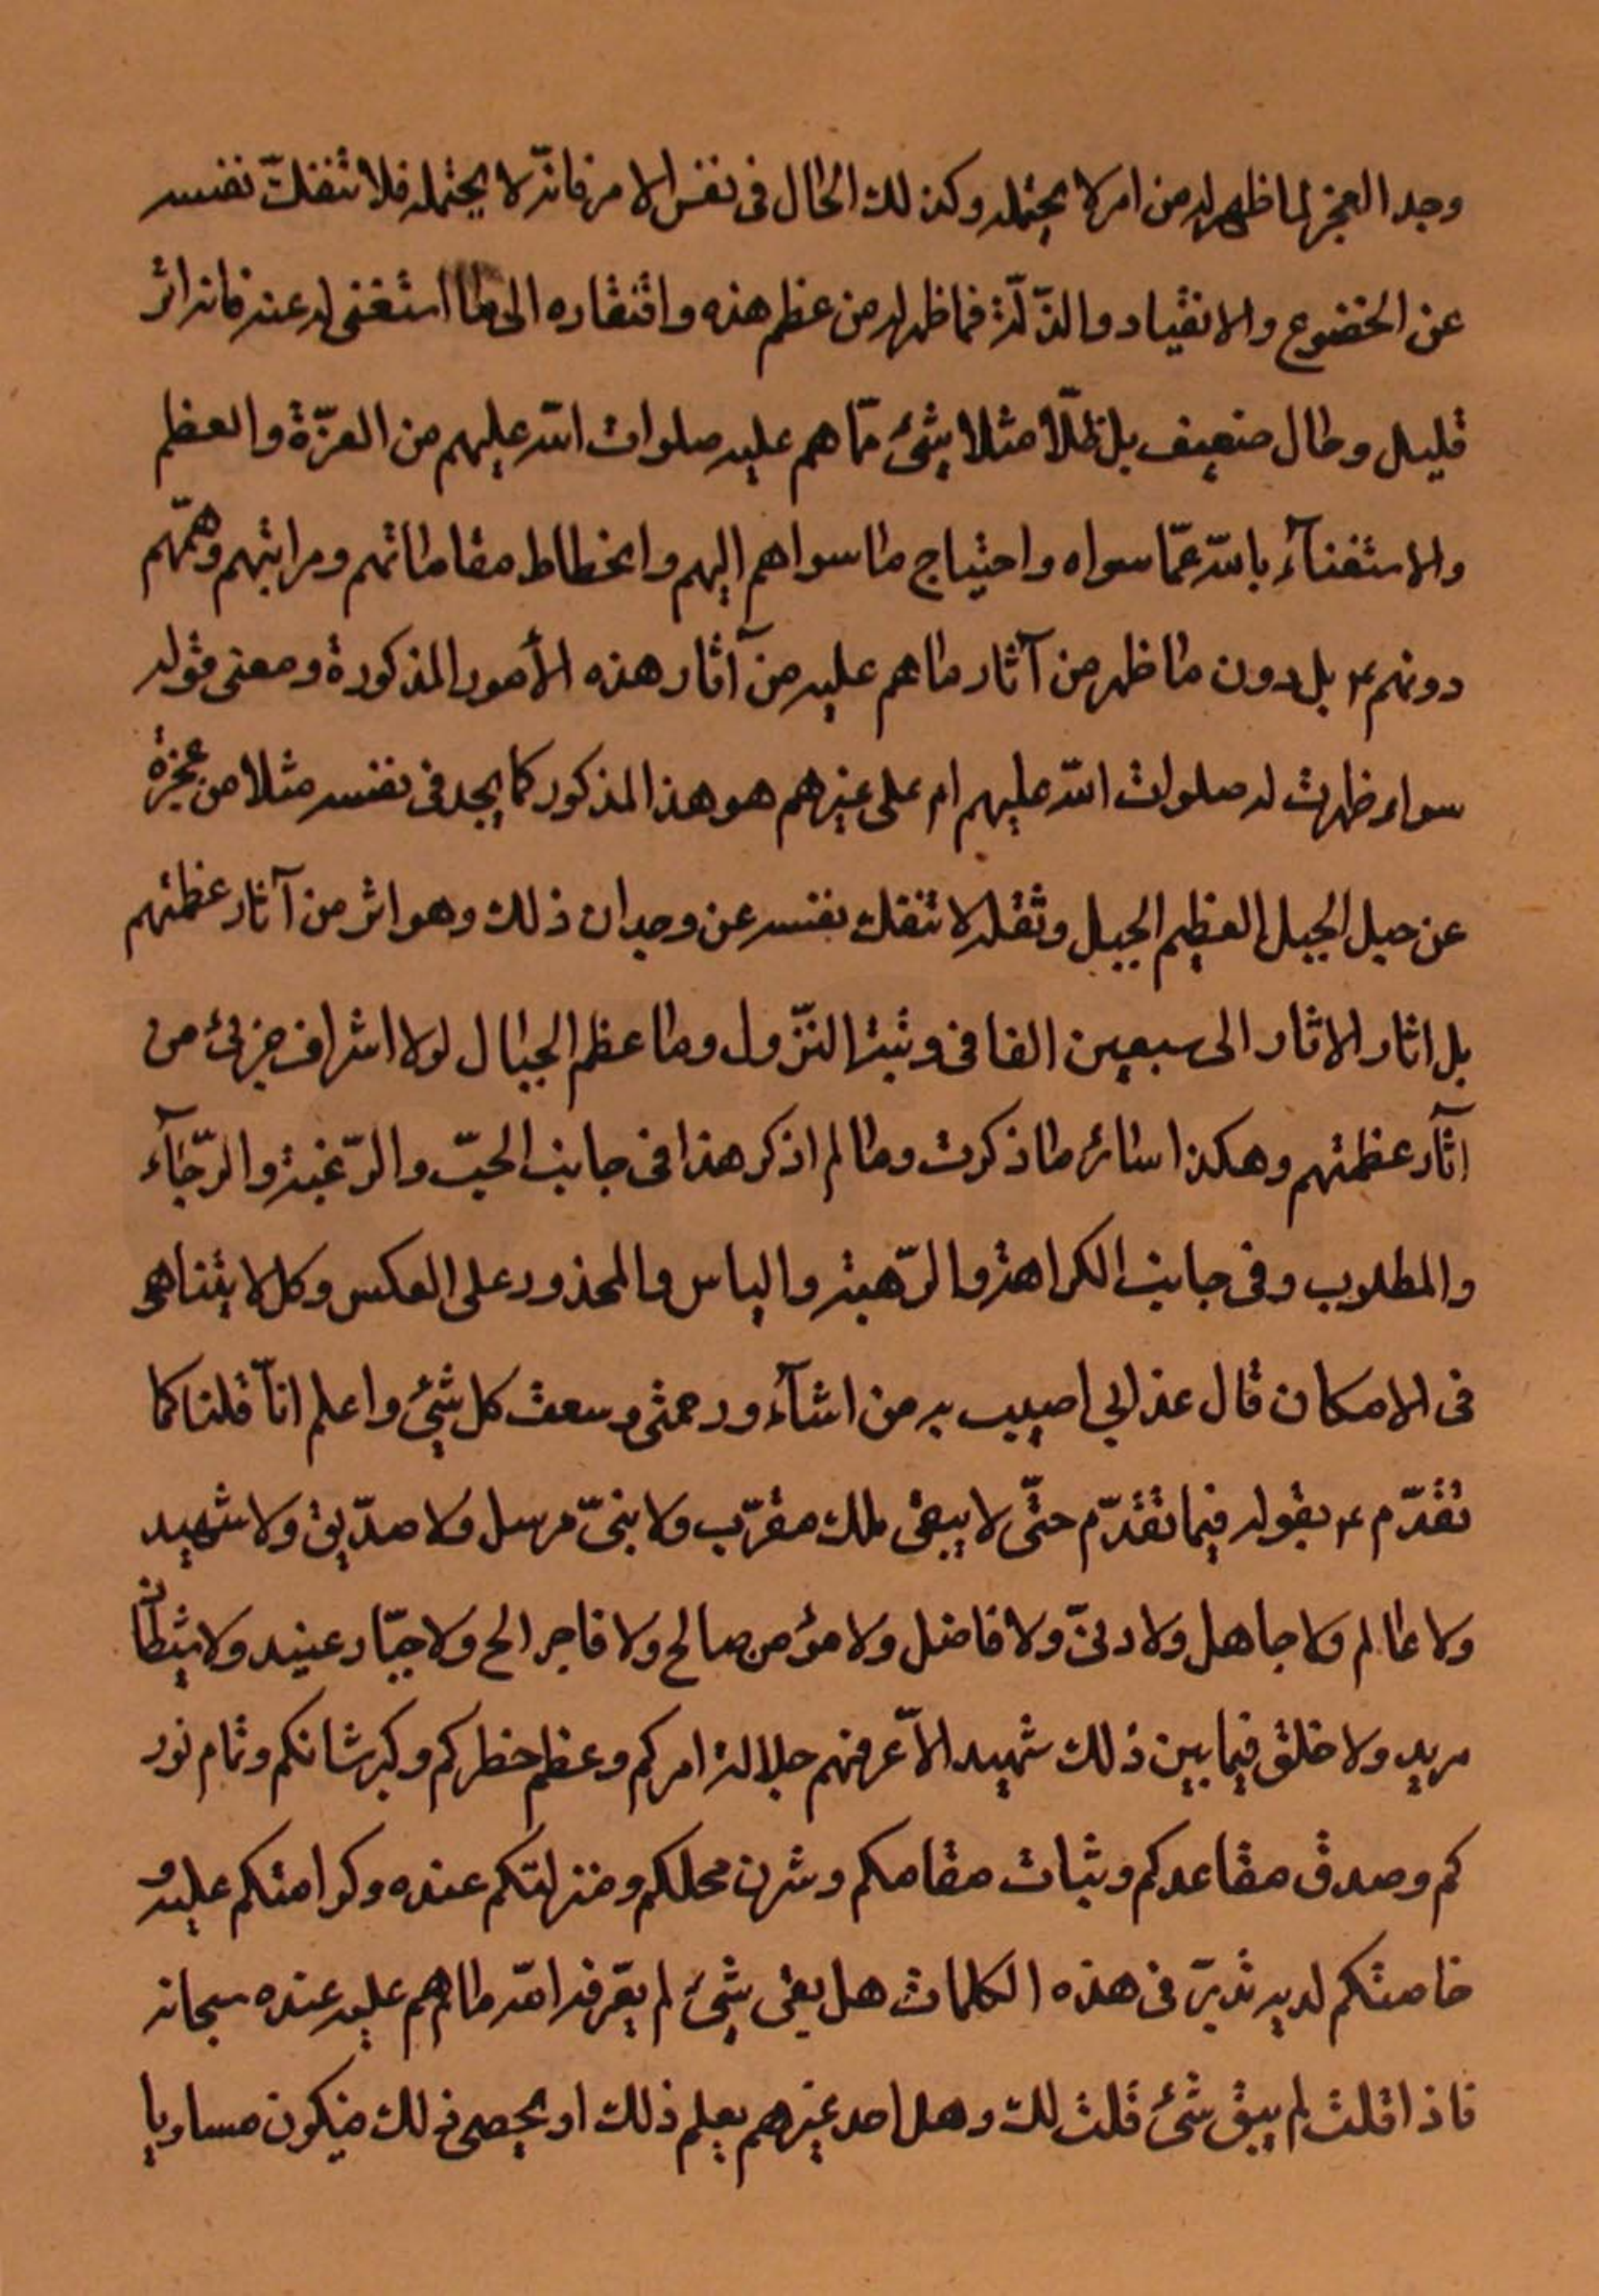 وجد العجز لما ظهر له من امر لا يحتمله وكذلك الحال فى نفس الامر فانّه لا يحتمله فلا تنفكّ نفسه
عن الخضوع والانقياد والذّلّة فما ظهر له من عظم هذه وافتقاره الى ما استغنى له عنه فانه اثر
قليل وحال ضعيف بل ظلّا مثلا بشئ ممّا هم عليه صلوات الله عليهم من العزّة والعظم
والاستغنآء بالله عمّا سواه واحتياج ما سواهم اليهم وانحطاط مقاماتهم ومراتبهم وهممهم
دونهم ع بل دون ما ظهر من آثار ما هم عليه من آثار هذه الأمور المذكورة ومعنى قوله
سواء ظهرت له صلوات الله عليهم ام على غيرهم هو هذا المذكور كما يجد فى نفسه مثلا من عجزه
عن حمل الجبل العظيم الجبل وثقله لا تنفك نفسه عن وجدان ذلك وهو اثر من آثار عظمتهم
بل اثار الاثار الى سبعين الفا فى رتبة النّزول وما عظم الجبال لولا اشراف جزئ من
آثار عظمتهم وهكذا سائر ما ذكرت وما لم اذكر هذا فى جانب الحبّ والرّغبة والرّجآء
والمطلوب وفى جانب الكراهة والرّهبة والياس والمحذور على العكس وكل لا يتناهى
فى الامكان قال عذابي اصيب به من اشآء ورحمتى وسعت كل شئ واعلم انّا قلنا كما
تقدّم ع بقوله فيما تقدّم حتّى لا يبقى ملك مقرّب ولا نبىّ مرسل ولا صدّيق ولا شهيد
ولا عالم ولا جاهل ولا دنىّ ولا فاضل ولا مؤمن صالح ولا فاجر الح ولا جبّار عنيد ولا شيطان
مريد ولا خلق فيما بين ذلك شهيد الاّ عرفهم جلالة امركم وعظم خطركم وكبر شانكم وتمام نور
كم وصدق مقاعدكم وثبات مقامكم وشرف محلكم ومنزلتكم عنده وكرامتكم عليه و
خاصتكم لديه تدبّر فى هذه الكلمات هل بقى شئ لم يعّرفه الله ما هم عليه عنده سبحانه
فاذا قلت لم يبق شئ قلت لك وهل احد غيرهم يعلم ذلك او يحصى ذلك فيكون مساويا